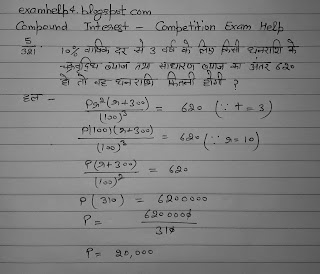 examhelp4.blogspot.com
Compound Interest - Competition Exam Help
5/321: 10% वार्षिक दर से 3 वर्ष के लिए किसी धनराशि के
चक्रवृद्धि ब्याज तथा साधारण ब्याज का अंतर 620
हो तो वह धनराशि कितनी होगी ?
हल - Pr²(r+300)/(100)³ = 620 (∵ t = 3)
P(100)(r+300)/(100)³ = 620 (∵ r = 10)
P(r+300)/(100)² = 620
P(310) = 6200000
P = 6200000/310
P = 20,000